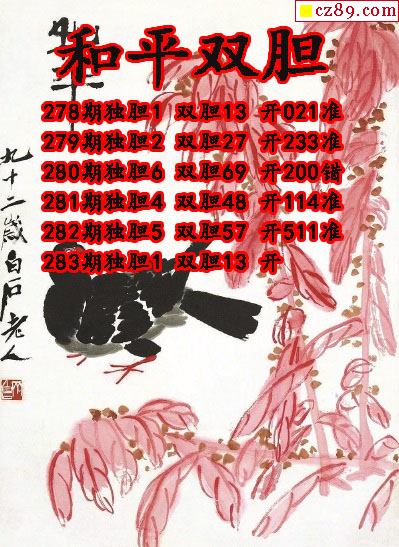 cz89.com
和平双胆
278期独胆1 双胆13 开021准
279期独胆2 双胆27 开233准
280期独胆6 双胆69 开200错
281期独胆4 双胆48 开114准
282期独胆5 双胆57 开511准
283期独胆1 双胆13 开
九十二岁白石老人